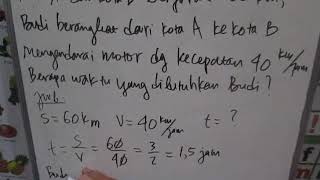 Budi berangkat dari kota A ke kota B
Mengendarai motor dg kecepatan 40 km/jam
Berapa waktu yang dibutuhkan Budi?
Jwb
S = 60 km V = 40 km/jam t = ?
t = S/V = 60/40 = 3/2 = 1,5 jam